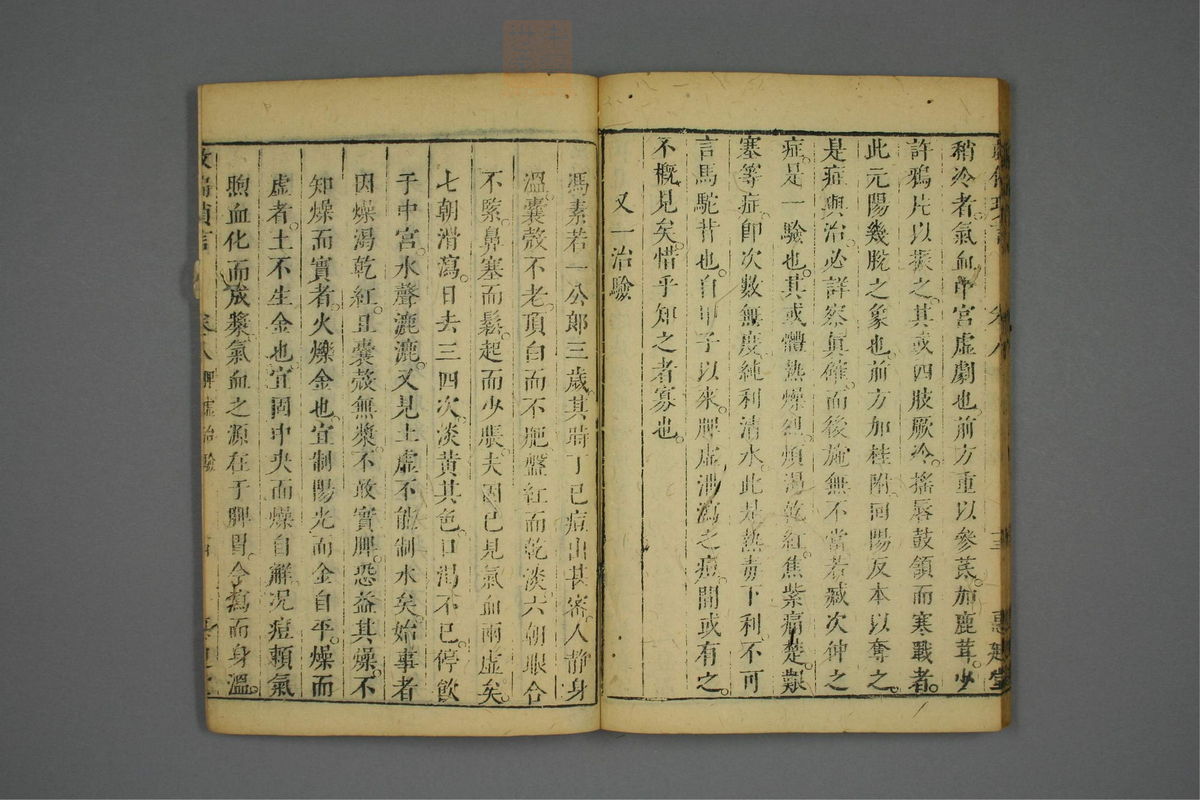 稍冷者氣血中宮虛劇也前方重以參茋加鹿茸少
許鴉片以振之其或四肢厥冷搖唇鼓頷而寒戰者
此元陽幾脫之象也前方加桂附囘陽反本以奪之
是症與治必詳察眞確而後施無不當若臧次仲之
症是一驗也其或體熱燥烈煩渴乾紅焦紫痛楚艱
塞等症卽次數無度純利清水此是熱毒下利不可
言馬駝昔也自甲子以來脾虛滑瀉之痘間或有之
不概見矣惜乎知之者寡也
又一治驗
馮素若一公郎三歲其時丁巳痘出甚密人靜身
溫囊殻不老頂白而不疤盤紅而乾淡六朝眼合
不緊鼻塞而鬆起而少脹夫固已見氣血兩虛矣
七朝滑瀉日去三四次淡黃其色口渴不已停飲
于中宮水聲漉漉又見土虛不能制水矣始事者
因燥渴乾紅且囊殻無漿不敢實脾恐益其燥不
知燥而實者火爍金也宜制陽光而金自平燥而
虛者土不生金也宜固中央而燥自解况痘賴氣
煦血化而成漿氣血之源在于脾胃今瀉而身溫
卷八脾虛治驗